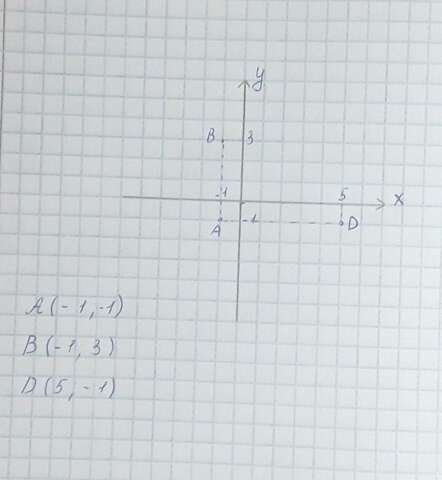 y
B 3
-1 5 x
A -1 D
A(-1,-1)
B(-1, 3)
D(5, -1)